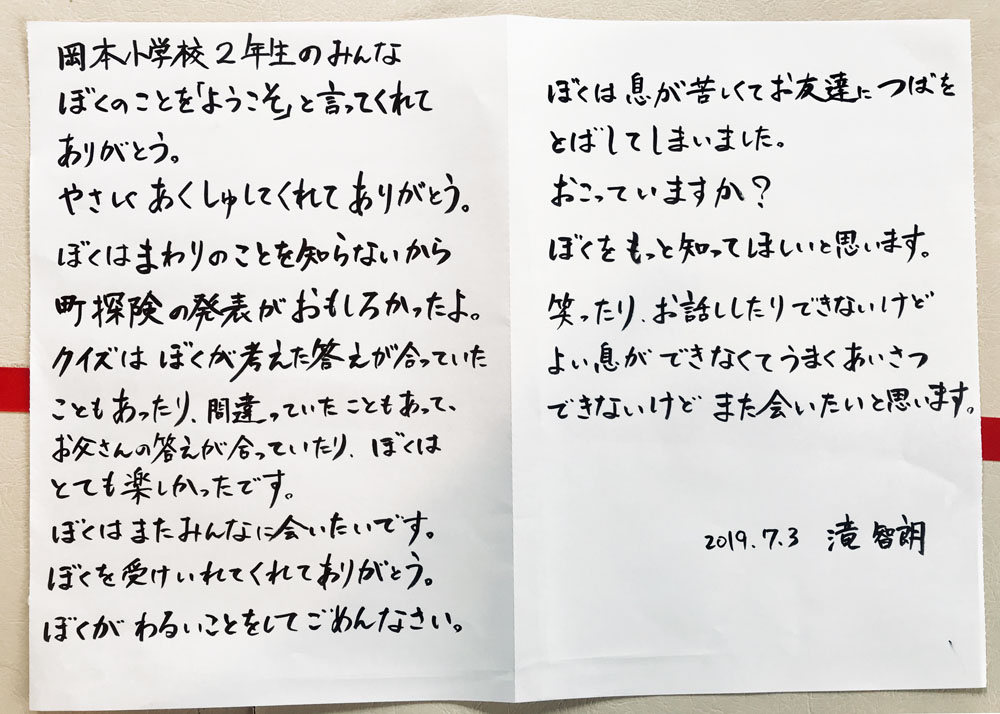 岡本小学校2年生のみんな
ぼくのことを「ようこそ」と言ってくれて
ありがとう。
やさしく あくしゅしてくれて ありがとう。
ぼくはまわりのことを知らないから
町探険の発表がおもしろかったよ。
クイズは ぼくが考えた答えが合っていた
こともあったり、間違っていたこともあって、
お父さんの答えが合っていたり、ぼくは
とても楽しかったです。
ぼくはまたみんなに会いたいです。
ぼくを受けいれてくれてありがとう。
ぼくが わるいことをしてごめんなさい。
ぼくは息が苦しくてお友達につばを
とばしてしまいました。
おこっていますか?
ぼくをもっと知ってほしいと思います。
笑ったり、お話ししたりできないけど
よい息ができなくてうまくあいさつ
できないけど また会いたいと思います。
2019.7.3 滝 智朗